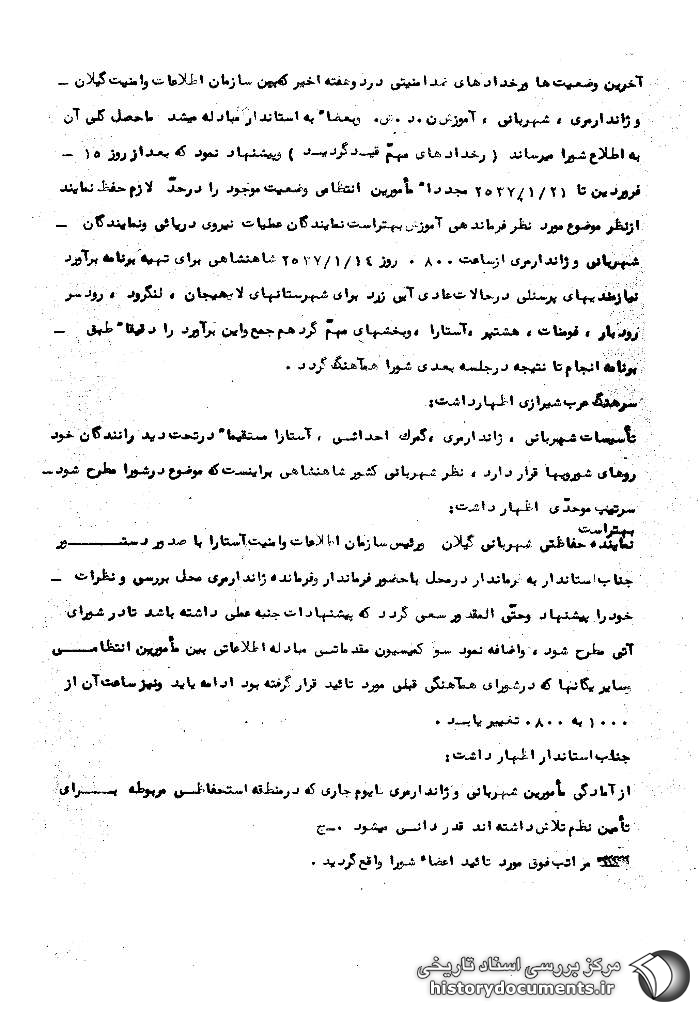 آخرین وضعیت ها ورخدادهای ضدامنیتی دردوهفته اخیر که بین سازمان اطلاعات وامنیت گیلان –
و ژاندارمری ، شهربانی ، آموزش ن.د.ش. وبعضاً به استاندار مبادله میشد ماحصل کلی آن
به اطلاع شورا میرساند ( رخدادهای مهمّ قیدگردید ) وپیشنهاد نمود که بعداز روز ۱۵ –
فروردین تا ۲۵۳۷/۱/۲۱ مجدداً مأمورین انتظامی وضعیت موجود را درحدّ لازم حفظ نمایند
ازنظر موضوع مورد نظر فرماندهی آموزش بهتراست نمایندگان عملیات نیروی دریائی ونمایندگان –
شهربانی و ژاندارمری ازساعت ۰۸۰۰ روز ۲۵۳۷/۱/۱۴ شاهنشاهی برای تهیه برنامه برآورد
نیازمندیهای پرسنلی درحالات عادی آبی زرد برای شهرستانهای لاهیجان ، لنگرود ، رودسر
رودبار ، فومنات ، هشتپر ،آستارا ،وبخشهای مهمّ گردهم جمع واین برآورد را دقیقاً طبق –
برنامه انجام تا نتیجه درجلسه بعدی شورا هم‌آهنگ گردد .
سرهنگ عرب شیرازی اظهارداشت:
تأسیسات شهربانی ، ژاندارمری ،گمرک احداثی ، آستارا مستقیماً درتحت دید رانندگان خود
روهای شورویها قرار دارد ، نظر شهربانی کشور شاهنشاهی براینست که موضوع درشورا مطرح شود–
سرتیپ موحدّی اظهار داشت:
بهتراست
نماینده حفاظتی شهربانی گیلان ورئیس سازمان اطلاعات وامنیت آستارا با صدور دستــــــور
جناب استاندار به فرماندار درمحل باحضور فرماندار وفرمانده ژاندارمری محل بررسی و نظرات –
خودرا پیشنهاد وحتّی المقدور سعی گردد که پیشنهادات جنبه عملی داشته باشد تادر شورای
آتی مطرح شود ، واضافه نمود سو کمیسیون مقدماتی مبادله اطلاعاتی بین مأمورین انتظامــــی
وسایر یگانها که درشورای هم‌آهنگی قبلی مورد تائید قرار گرفته بود ادامه یابد ونیز ساعت آن از
۱۰۰۰ به ۰۸۰۰ تغییر یابـد .
جناب استاندار اظهار داشت:
از آمادگی مأمورین شهربانی و ژاندارمری تایوم جاری که درمنطقه استحفاظــی مربوطه بــــرای
تأمین نظم تلاش داشته اند قدر دانــی میشود .–ج
مراتب فوق مورد تائید اعضاء شورا واقع گردید .
مرکز بررسی اسناد تاریخی
historydocuments.ir